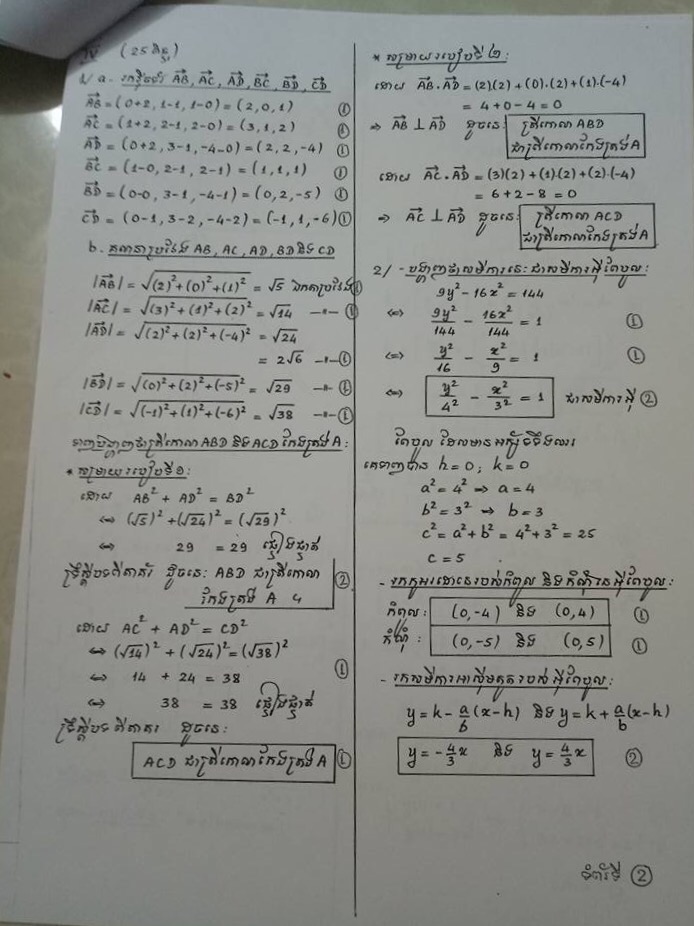 IV (25 ពិន្ទុ)
1/ a - រកវ៉ិចទ័រ AB, AC, AD, BC, BD, CD
AB = (0+2, 1-1, 1-0) = (2, 0, 1) ①
AC = (1+2, 2-1, 2-0) = (3, 1, 2) ①
AD = (0+2, 3-1, -4-0) = (2, 2, -4) ①
BC = (1-0, 2-1, 2-1) = (1, 1, 1) ①
BD = (0-0, 3-1, -4-1) = (0, 2, -5) ①
CD = (0-1, 3-2, -4-2) = (-1, 1, -6) ①
b. គណនាប្រវែង AB, AC, AD, BD និង CD
|AB| = √(2)²+(0)²+(1)² = √5 ឯកតាប្រវែង ①
|AC| = √(3)²+(1)²+(2)² = √14 -"- ①
|AD| = √(2)²+(2)²+(-4)² = √24
= 2√6 -"- ①
|BD| = √(0)²+(2)²+(-5)² = √29 -"- ①
|CD| = √(-1)²+(1)²+(-6)² = √38 -"- ①
ទាញបង្ហាញថាត្រីកោណ ABD និង ACD កែងត្រង់ A :
* សម្រាយរបៀបទី១:
ដោយ AB² + AD² = BD²
⇔ (√5)² + (√24)² = (√29)²
⇔ 29 = 29 ផ្ទៀងផ្ទាត់
ទ្រឹស្តីបទពីតាគ័រ ដូចនេះ ABD ជាត្រីកោណ ②
កែងត្រង់ A ។
ដោយ AC² + AD² = CD²
⇔ (√14)² + (√24)² = (√38)²
⇔ 14 + 24 = 38 ①
⇔ 38 = 38 ផ្ទៀងផ្ទាត់
ទ្រឹស្តីបទពីតាគ័រ ដូចនេះ:
ACD ជាត្រីកោណកែងត្រង់ A ①
* សម្រាយរបៀបទី២:
ដោយ AB . AD = (2)(2) + (0).(2) + (1).(-4)
= 4 + 0 - 4 = 0
⇒ AB ⊥ AD ដូចនេះ ត្រីកោណ ABD
ជាត្រីកោណកែងត្រង់ A
ដោយ AC . AD = (3)(2) + (1).(2) + (2).(-4)
= 6 + 2 - 8 = 0
⇒ AC ⊥ AD ដូចនេះ ត្រីកោណ ACD
ជាត្រីកោណកែងត្រង់ A
2/ - បង្ហាញថាសមីការនេះជាសមីការអ៊ីពែបូល:
9y² - 16x² = 144
⇔ 9y²/144 - 16x²/144 = 1 ①
⇔ y²/16 - x²/9 = 1 ①
⇔ y²/4² - x²/3² = 1 ជាសមីការអ៊ី ②
ពែបូល ដែលមានអ័ក្សទទឹងឈរ
គេទាញបាន h = 0 ; k = 0
a² = 4² ⇒ a = 4
b² = 3² ⇒ b = 3
c² = a² + b² = 4² + 3² = 25
c = 5 .
- រកកូអរដោនេរបស់កំពូល និងកំណុំនៃអ៊ីពែបូល:
កំពូល: (0, -4) និង (0, 4) ①
កំណុំ: (0, -5) និង (0, 5) ①
- រកសមីការអាស៊ីមតូតរបស់អ៊ីពែបូល:
y = k - a/b (x-h) និង y = k + a/b (x-h)
y = -4/3 x និង y = 4/3 x ②
ទំព័រទី ②